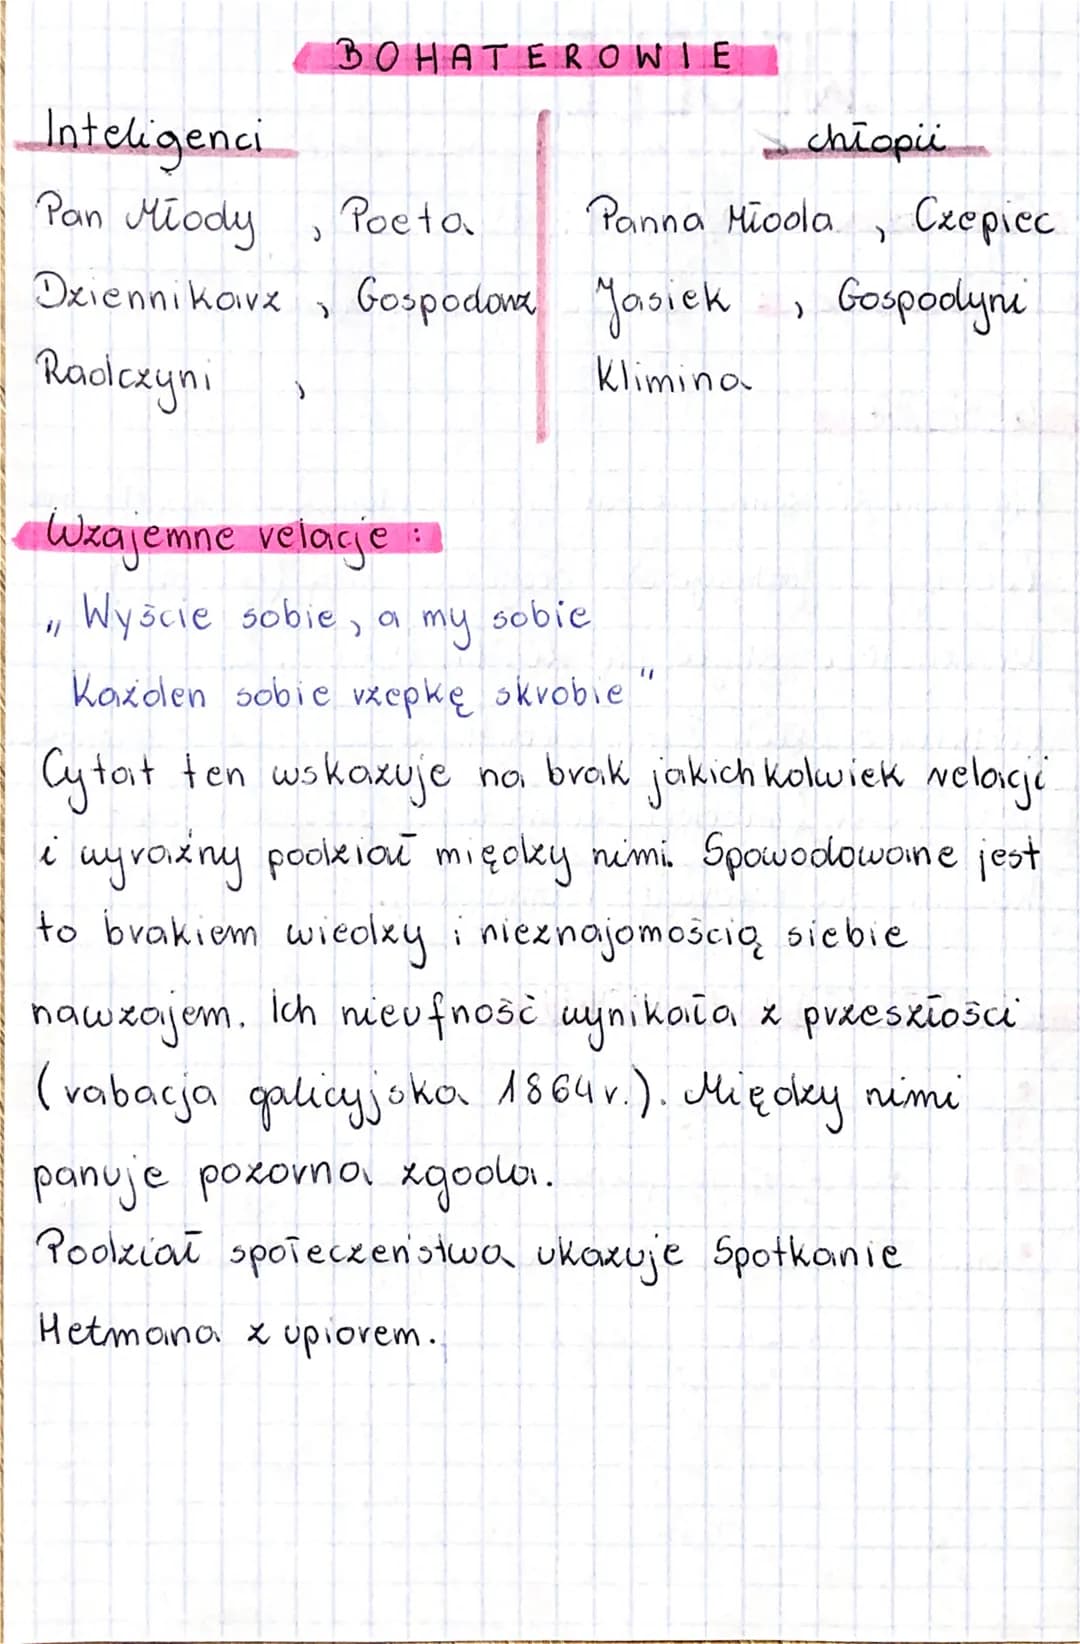 BOHATEROWIE
Inteligenci
Pan Młody , Poeta
Dziennikarz , Gospodarz
Radczyni ,
chłopii
Panna Młoda , Czepiec
Jasiek , Gospodyni
Klimina
Wzajemne relacje :
„ Wyście sobie, a my sobie
Każden sobie rzepkę skrobie "
Cytat ten wskazuje na brak jakichkolwiek relacji
i wyraźny podział między nimi. Spowodowane jest
to brakiem wiedzy i nieznajomością siebie
nawzajem. Ich nieufność wynikała z przeszłości
(rabacja galicyjska 1864r.). Między nimi
panuje pozorna zgoda.
Podział społeczeństwa ukazuje Spotkanie
Hetmana z upiorem.